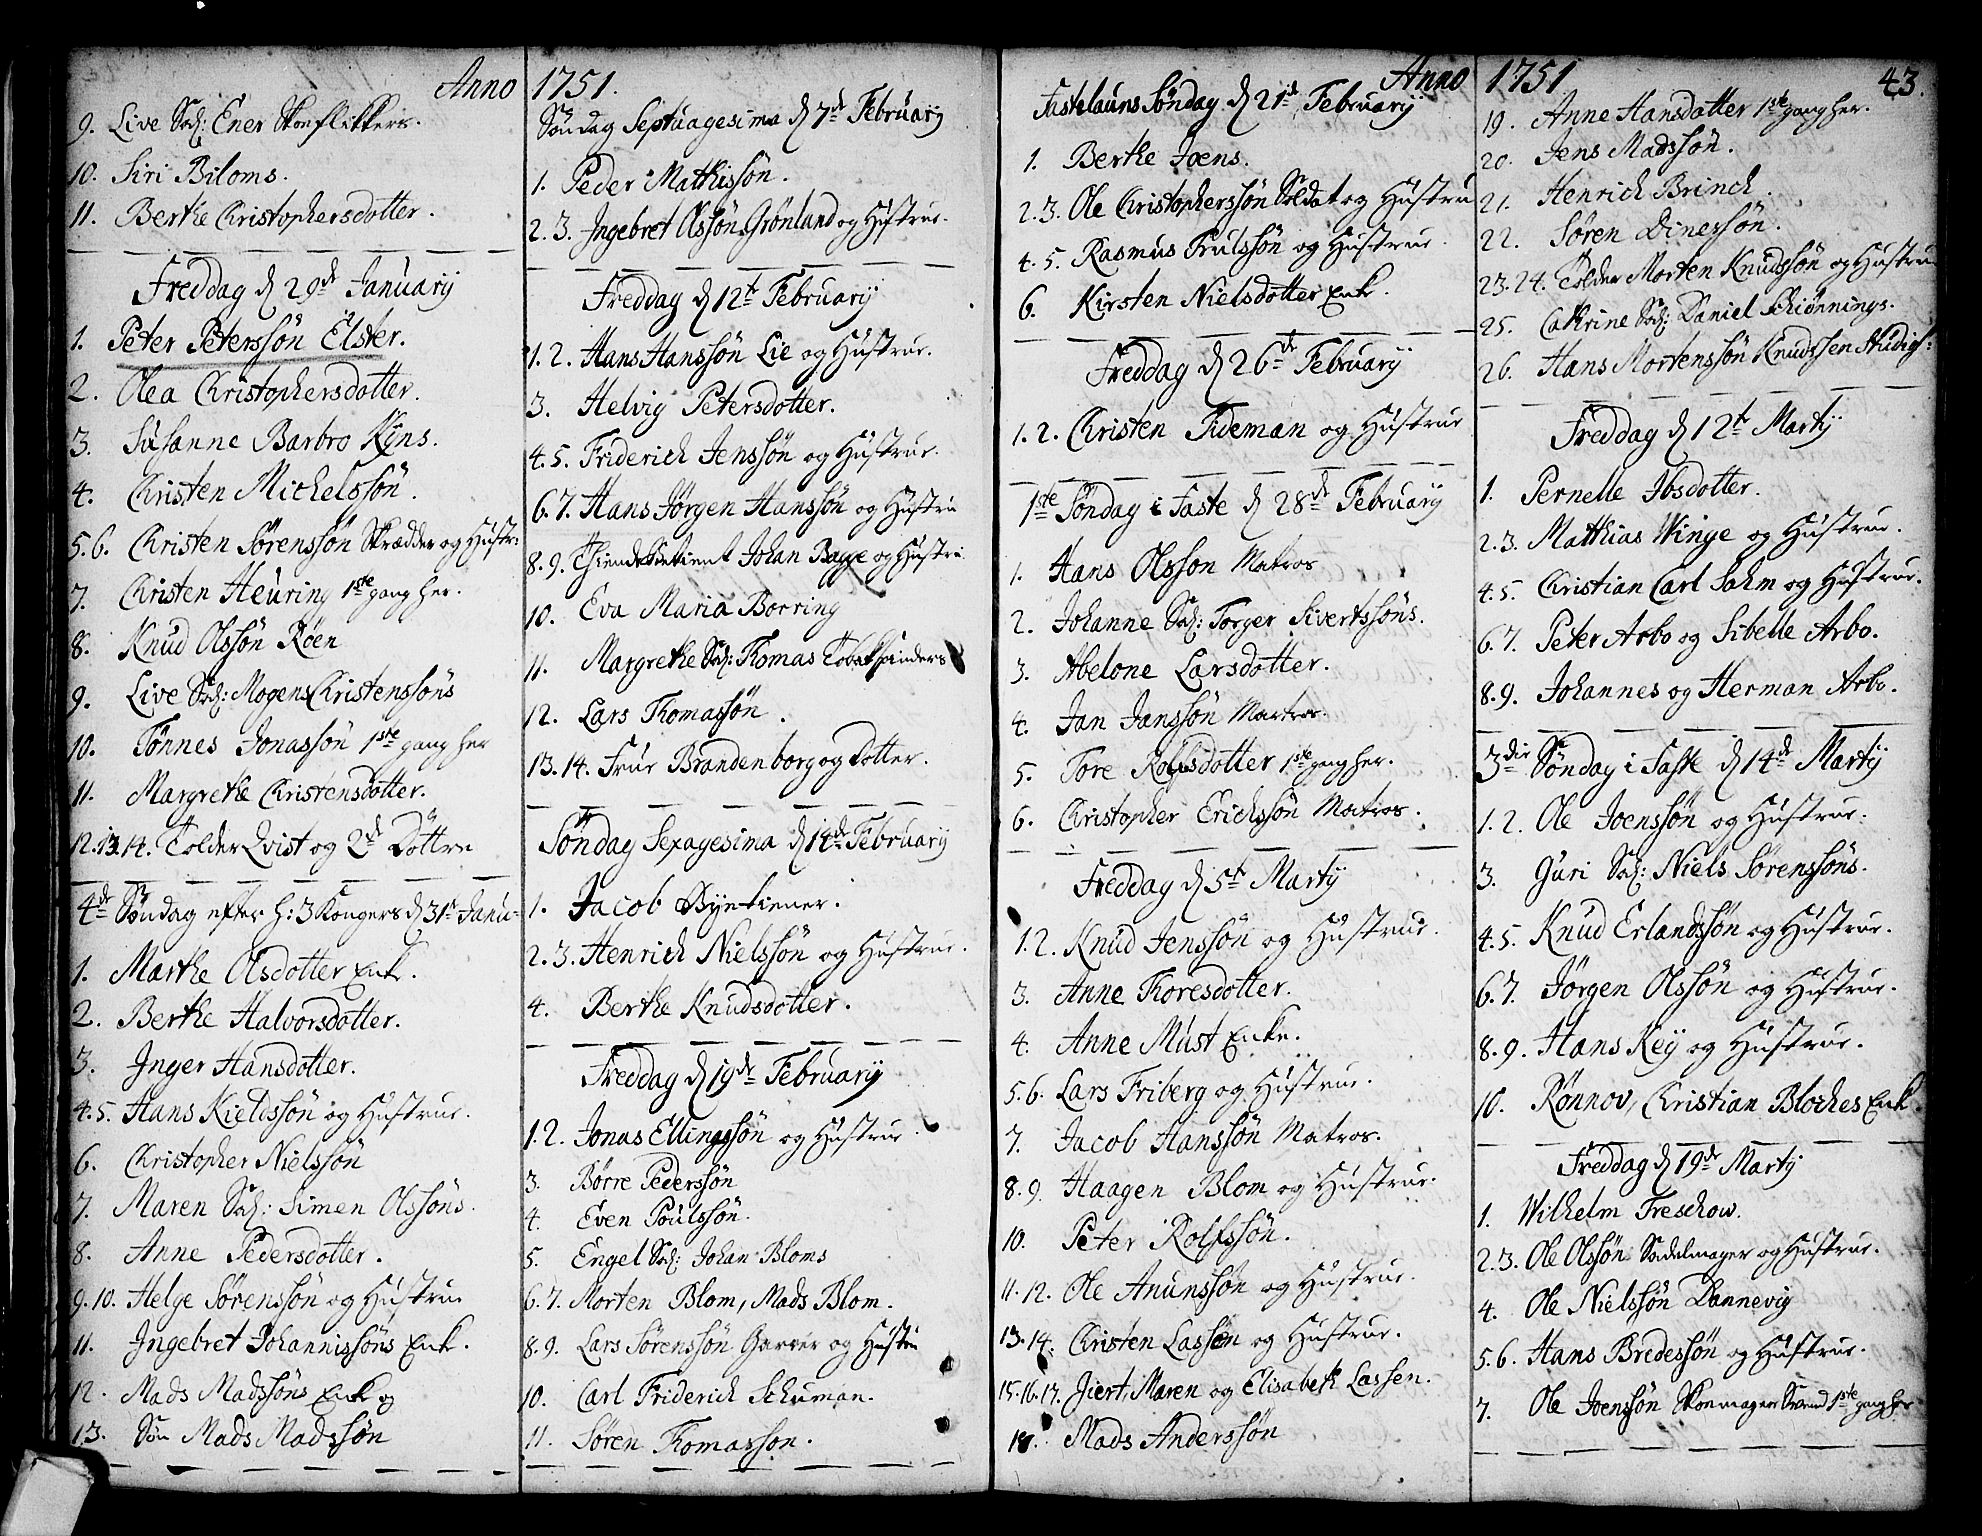 Anno
9. Live Sal: Ener Skoeflikkers.
10. Siri Biloms.
11. Berthe Christophersdotter.
Freddag d 29de Januarij
1. Peter Peterssön Elster.
2. Olea Christophersdotter.
3. Susanne Barbro Kÿns.
4. Christen Michelssön.
5.6. Christen Sørenssön Skrædder og Hustru
7. Christen Heuring 1ste gang her.
8. Knud Olssön Röen
9. Live Sal: Mogens Christenssöns
10. Tönnes Jonassön 1ste gang her
11. Margrethe Christensdotter.
12.13.14. Tolder Qvist og 2de Döttre
4de Søndag efter h: 3 Kongers d 31te Janu=
1. Marthe Olsdotter Enke.
2. Berthe Halvorsdotter.
3. Inger Hansdotter.
4.5. Hans Kieldssön og Hustrue.
6. Christopher Nielssön
7. Maren Sal: Simen Olssöns.
8. Anne Pedersdotter.
9.10. Helge Sörenssön og Hustrue
11. Ingebret Johannissöns Enke.
12. Mads Madssöns Enke og
13. Søn Mads Madssön
1751.
Söndag Septuagesima d 7de Februarij
1. Peder Mathissön.
2.3. Ingebret Olssön Grönland og Hustrue.
Freddag d 12te Februarij
1.2. Hans Hanssön Lie og Hustrue.
3. Helvig Petersdotter.
4.5. Friderich Jenssön og Hustrue.
6.7. Hans Jörgen Hanssön og Hustru
8.9. Johan Bagge og Hustru
10. Eva Maria Borring
11. Margrethe Sal: Thomas Tobakspinders
12. Lars Thomassön.
13.14. Frue Brandenborg og Dotter.
Söndag Sexagesima d 14de Februarij
1. Jacob Byetiener.
2.3. Henrich Nielssön og Hustrue.
4. Berthe Knudsdotter.
Freddag d 19de Februarij
1.2. Jonas Ellingssön og Hustrue
3. Børre Pederssön
4. Even Poulssön.
5. Engel Sal: Johan Bloms
6.7. Morten Blom, Mads Blom.
8.9. Lars Sörenssön Garver og Hustru
10. Carl Friderich Schuman.
11. Sören Thomassön.
Anno
Fastelauns Söndag d 21de Februarij
1. Berthe Joens.
2.3. Ole Christopherssön Soldat og Hustru
4.5. Rasmus Trulssön og Hustrue.
6. Kirsten Nielsdotter Enke.
Freddag d 26de Februarij
1.2. Christen Tideman og Hustrue
1ste Söndag i Faste d 28de Februarij
1. Hans Olsson Matros
2. Johanne Sal: Torger Sivertssöns.
3. Abelone Larsdotter.
4. Jan Janssön Martros.
5. Tore Rolfsdotter 1ste gang her.
6. Christopher Erichssön Matros.
Freddag d 5te Martij
1.2. Knud Jenssön og Hustrue.
3. Anne Thoresdotter.
4. Anne Must Enke.
5.6. Lars Friberg og Hustrue.
7. Jacob Hanssön Matros.
8.9. Haagen Blom og Hustrue.
10. Peter Rolfssön.
11.12. Ole Anunssön og Hustrue.
13.14. Christen Lassen og Hustrue.
15.16.17. Jiert, Maren og Elisabeth Lassen.
18. Mads Anderssön
1751 43.
19. Anne Hansdatter 1ste gang her.
20. Jens Madssön.
21. Henrich Brinch.
22. Søren Dinessön.
23.24. Tolder Morten Knudssön og Hustrue
25. Cathrine Sal: Daniel Schiönnings.
26. Hans Mortenssön Knudssen Studios:
Freddag d 12te Martij
1. Pernelle Ibsdotter.
2.3. Matthias Winge og Hustrue.
4.5. Christian Carl Sahm og Hustrue.
6.7. Peter Arbo og Sibelle Arbo.
8.9. Johannes og Herman Arbo.
3die Søndag i Faste d 14de Martij
1.2. Ole Joenssön og Hustrue.
3. Guri Sal: Niels Sørenssöns.
4.5. Knud Erlandssön og Hustrue.
6.7. Jörgen Olssön og Hustrue.
8.9. Hans Key og Hustrue.
10. Rønnov, Christian Bloches Enke
Freddag d 19de Martij
1. Wilhelm Treschow.
2.3. Ole Olssön Sadelmager og Hustrue.
4. Ole Nielssön Dannevig
5.6. Hans Bredessön og Hustrue.
7. Ole Joenssön Skoemager Svend 1ste gang her